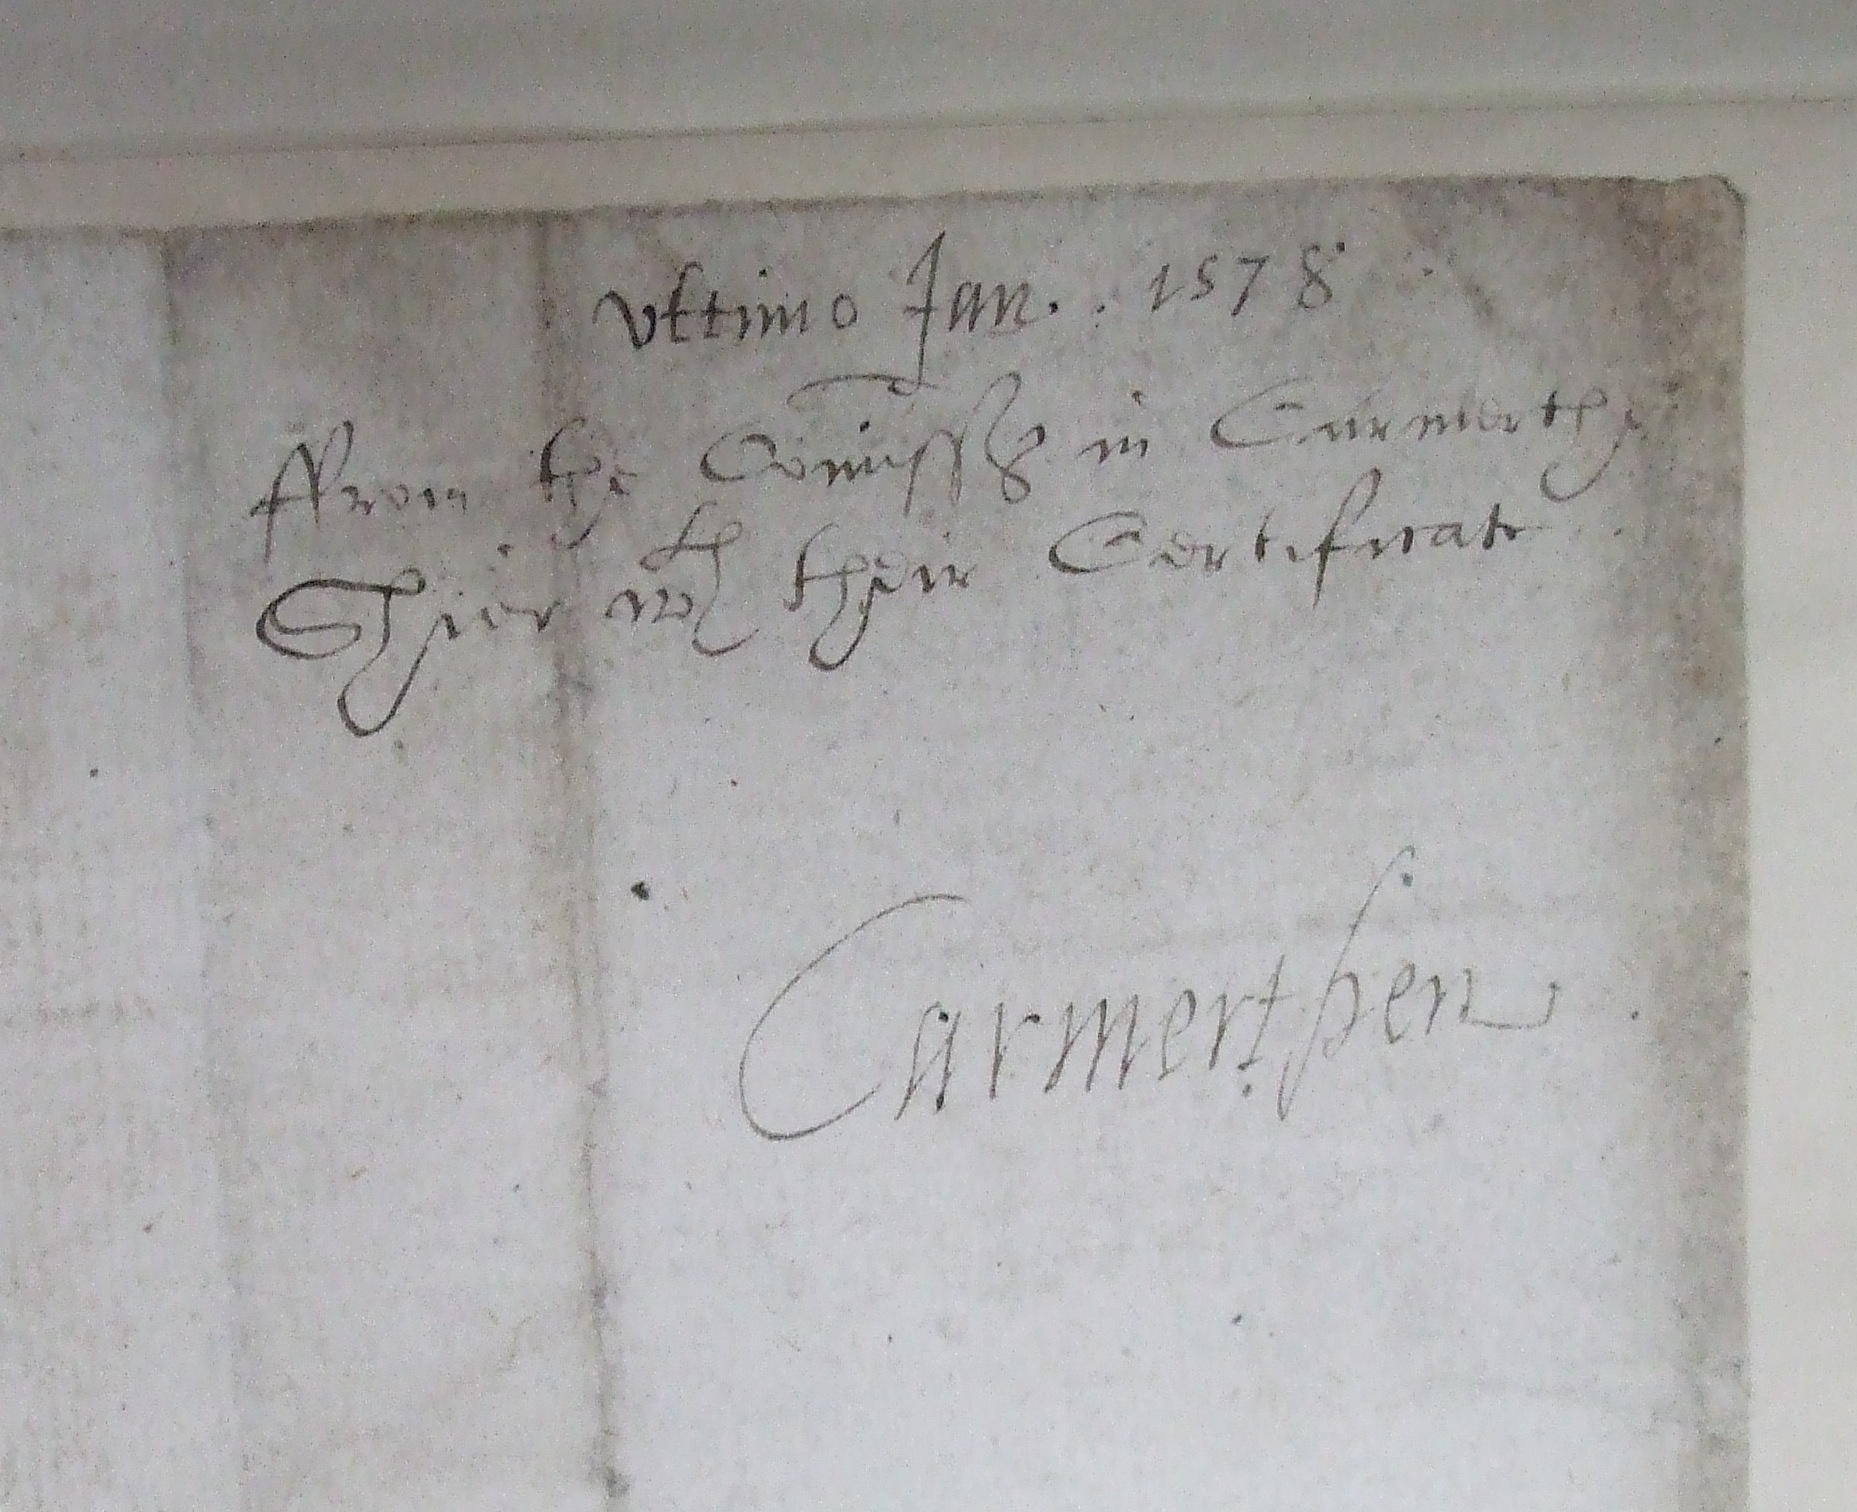 vltimo Jan. . 1578
ffrom the Comiss in Carmerthe
Shier wth their Certificate
Carmerthen